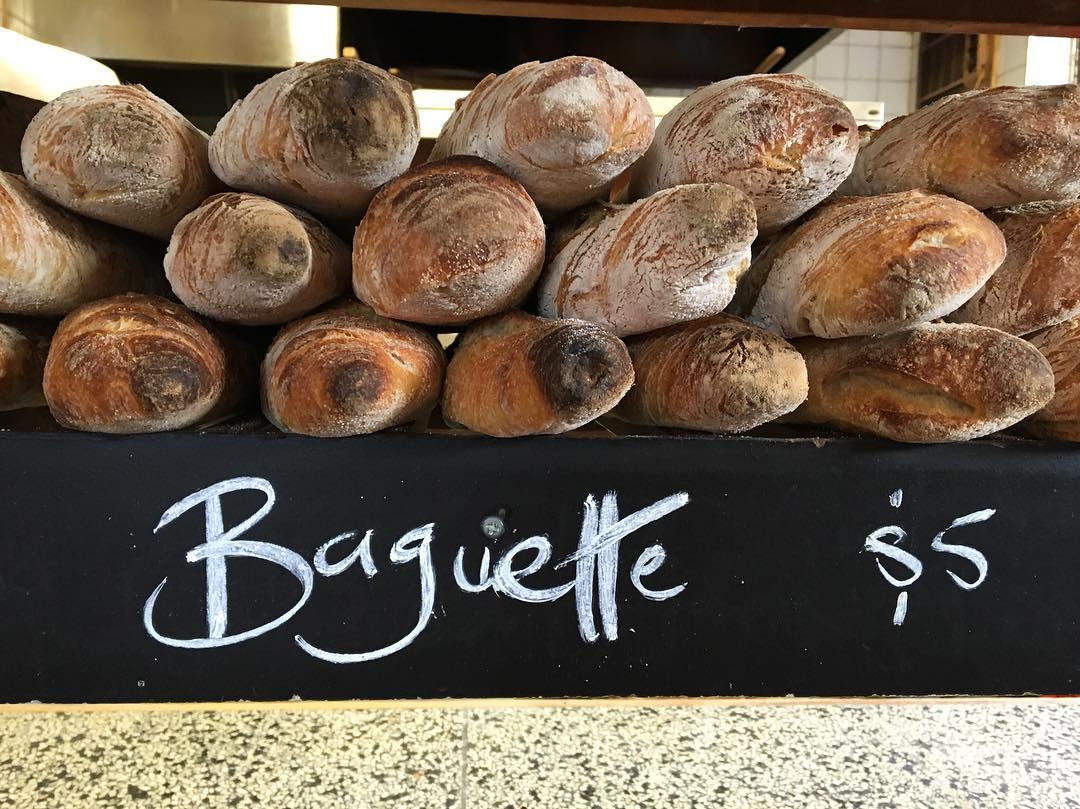 Baguette $5